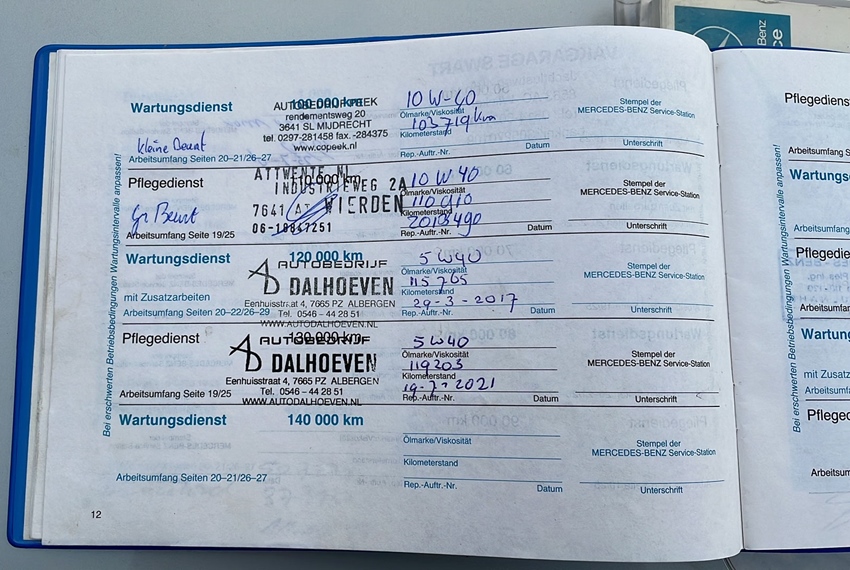 Benz
ce
Wartungsdienst
100 000 km
AUTOBEDRIJF PEEK
rendementsweg 20
3641 SL MIJDRECHT
tel. 0297-281458 fax. -284375
www.copeek.nl
10 W-40
Ölmarke/Viskosität
103719 km
Kilometerstand
Rep.-Auftr.-Nr. Datum
Stempel der
MERCEDES-BENZ Service-Station
Unterschrift
kleine Beurt
Arbeitsumfang Seiten 20–21/26–27
Pflegedienst
110 000 km
ATTWENTE.NL
INDUSTRIEWEG 2A
7641 AT WIERDEN
06-18847251
10 W 40
Ölmarke/Viskosität
110910
Kilometerstand
Rep.-Auftr.-Nr. Datum
Stempel der
MERCEDES-BENZ Service-Station
Unterschrift
Gr Beurt
Arbeitsumfang Seite 19/25
Wartungsdienst
120 000 km
AUTOBEDRIJF
AD DALHOEVEN
Eenhuisstraat 4, 7665 PZ ALBERGEN
Tel. 0546 – 44 28 51
WWW.AUTODALHOEVEN.NL
5 W40
Ölmarke/Viskosität
115705
Kilometerstand
29-3-2017
Rep.-Auftr.-Nr. Datum
Stempel der
MERCEDES-BENZ Service-Station
Unterschrift
mit Zusatzarbeiten
Arbeitsumfang Seiten 20–22/26–29
Pflegedienst
130 000 km
AUTOBEDRIJF
AD DALHOEVEN
Eenhuisstraat 4, 7665 PZ ALBERGEN
Tel. 0546 – 44 28 51
WWW.AUTODALHOEVEN.NL
5W40
Ölmarke/Viskosität
119203
Kilometerstand
19-7-2021
Rep.-Auftr.-Nr. Datum
Stempel der
MERCEDES-BENZ Service-Station
Unterschrift
Arbeitsumfang Seite 19/25
Wartungsdienst
140 000 km
Ölmarke/Viskosität
Kilometerstand
Rep.-Auftr.-Nr. Datum
Stempel der
MERCEDES-BENZ Service-Station
Unterschrift
Arbeitsumfang Seiten 20–21/26–27
12
Bei erschwerten Betriebsbedingungen Wartungsintervalle anpassen!
Pflegedienst
Wartungs
Pflegedie
Wartung
mit Zusatz
Pflege
Bei erschwerten Betriebsbedingungen Wartungsintervalle anpassen!